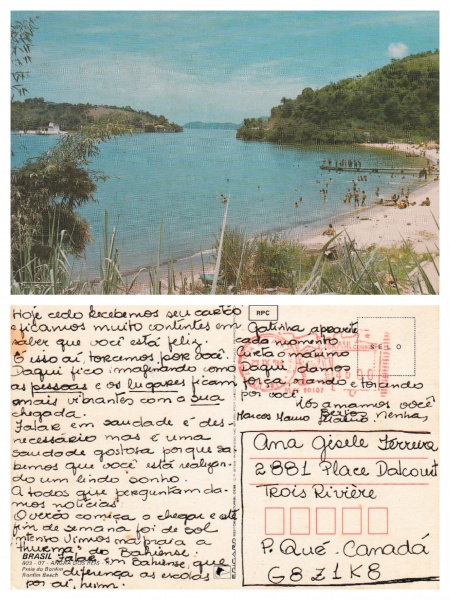 Hoje cedo recebemos seu cartão
e ficamos muito contentes em
saber que você está feliz.
É isso aí, torcemos por você.
Daqui fico imaginando como
as pessoas e os lugares ficam
mais vibrantes com a sua
chegada.
Falar em saudade é des-
necessário mas é uma
saudade gostosa porque sa-
bemos que você está realizan-
do um lindo sonho.
A todos que perguntam da-
mos notícias.
O verão começa a chegar e este
fim de semana foi de sol
intenso. Vimos para a
"turma" do Bahiense.
Falar em Bahiense, que
diferença as escolas
por aí, hein.
BRASIL
803 - 07 - ANGRA DOS REIS - RJ
Praia do Bonfim
Bonfim Beach
EDICARD
RPC
SELO
Gatinha aproveite
cada momento.
Curta o máximo
Daqui damos
força, orando e torcendo
por você.
Nós amamos você
Marcos Mauro Sérgio Nenha
Ana Gisele Ferreira
2881 Place Dalcourt
Trois Rivière
P. Qué. Canadá
G8Z1K8